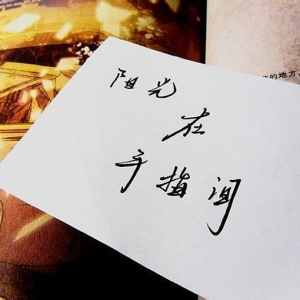 阳光
在
手指间
的地方,